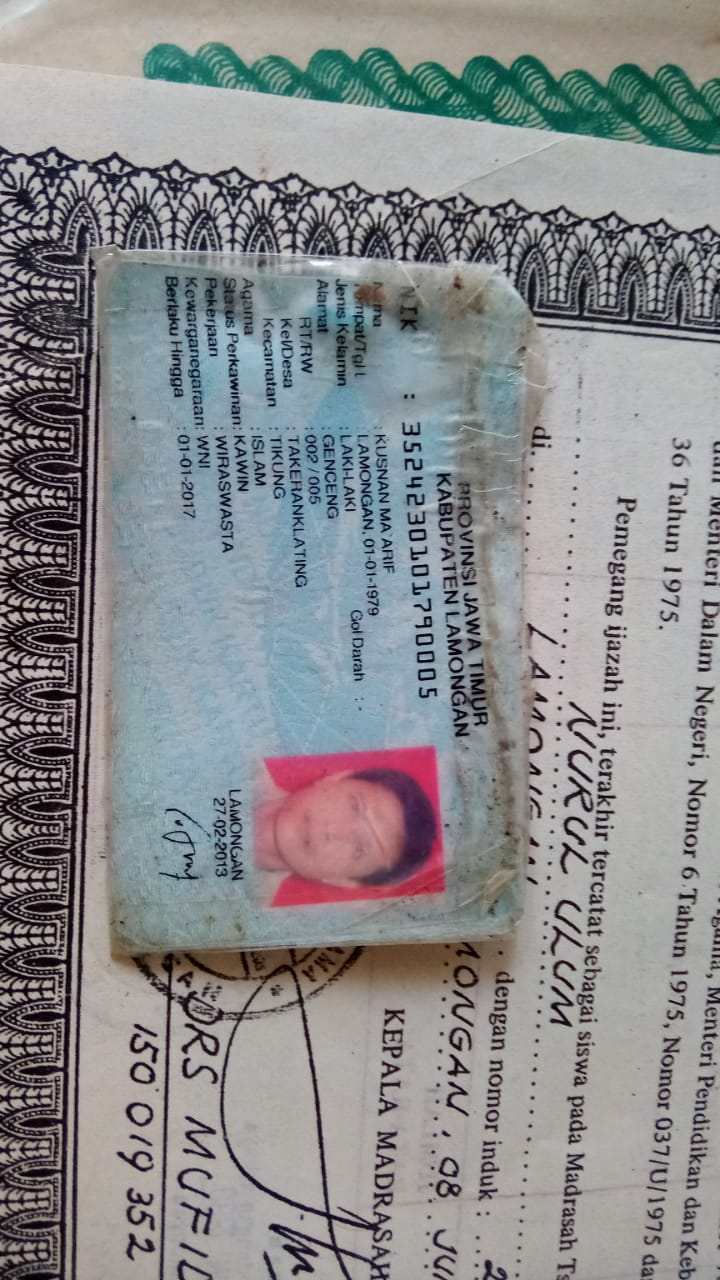 Menteri Pendidikan dan Keb
dan Menteri Dalam Negeri, Nomor 6 Tahun 1975, Nomor 037/U/1975 dan
36 Tahun 1975.
Pemegang ijazah ini, terakhir tercatat sebagai siswa pada Madrasah Ts
NURUL ULUM
di LAMONGAN
dengan nomor induk : 2
MONGAN, 08 JU
KEPALA MADRASAH
DRS MUFID
150 019 352
PROVINSI JAWA TIMUR
KABUPATEN LAMONGAN
NIK : 3524230101790005
Nama : KUSNAN MA'ARIF
Tempat/Tgl L : LAMONGAN, 01-01-1979
Jenis Kelamin : LAKI-LAKI Gol Darah : -
Alamat : GENCENG
RT/RW : 002 / 005
Kel/Desa : TAKERANKLATING
Kecamatan : TIKUNG
Agama : ISLAM
Status Perkawinan: KAWIN
Pekerjaan : WIRASWASTA
Kewarganegaraan: WNI
Berlaku Hingga : 01-01-2017
LAMONGAN
27-02-2013